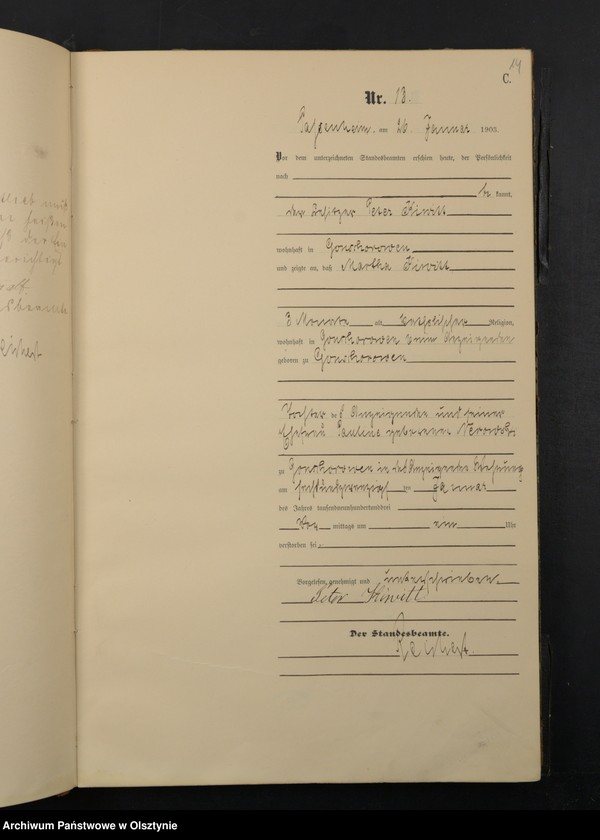 14
C.
Nr. 13.
Passenheim, am 26 Januar 1903.
Vor dem unterzeichneten Standesbeamten erschien heute, der Persönlichkeit
nach
be kannt,
der Besitzer Peter Kiwitt
wohnhaft in Gonschorowen
und zeigte an, daß Martha Kiwitt
3 Monate alt, katholischer Religion,
wohnhaft in Gonschorowen beim Anzeigenden
geboren zu Gonschorowen
Tochter des Anzeigenden und seiner
Ehefrau Pauline geborenen
zu Gonschorowen in des Anzeigenden Wohnung
am fünfundzwanzigsten Januar
des Jahres tausendneunhundertunddrei
Vor mittags um ein Uhr
verstorben sei.
Vorgelesen, genehmigt und unterschrieben
Peter Kiwitt
Der Standesbeamte.
Reichert
Archiwum Państwowe w Olsztynie